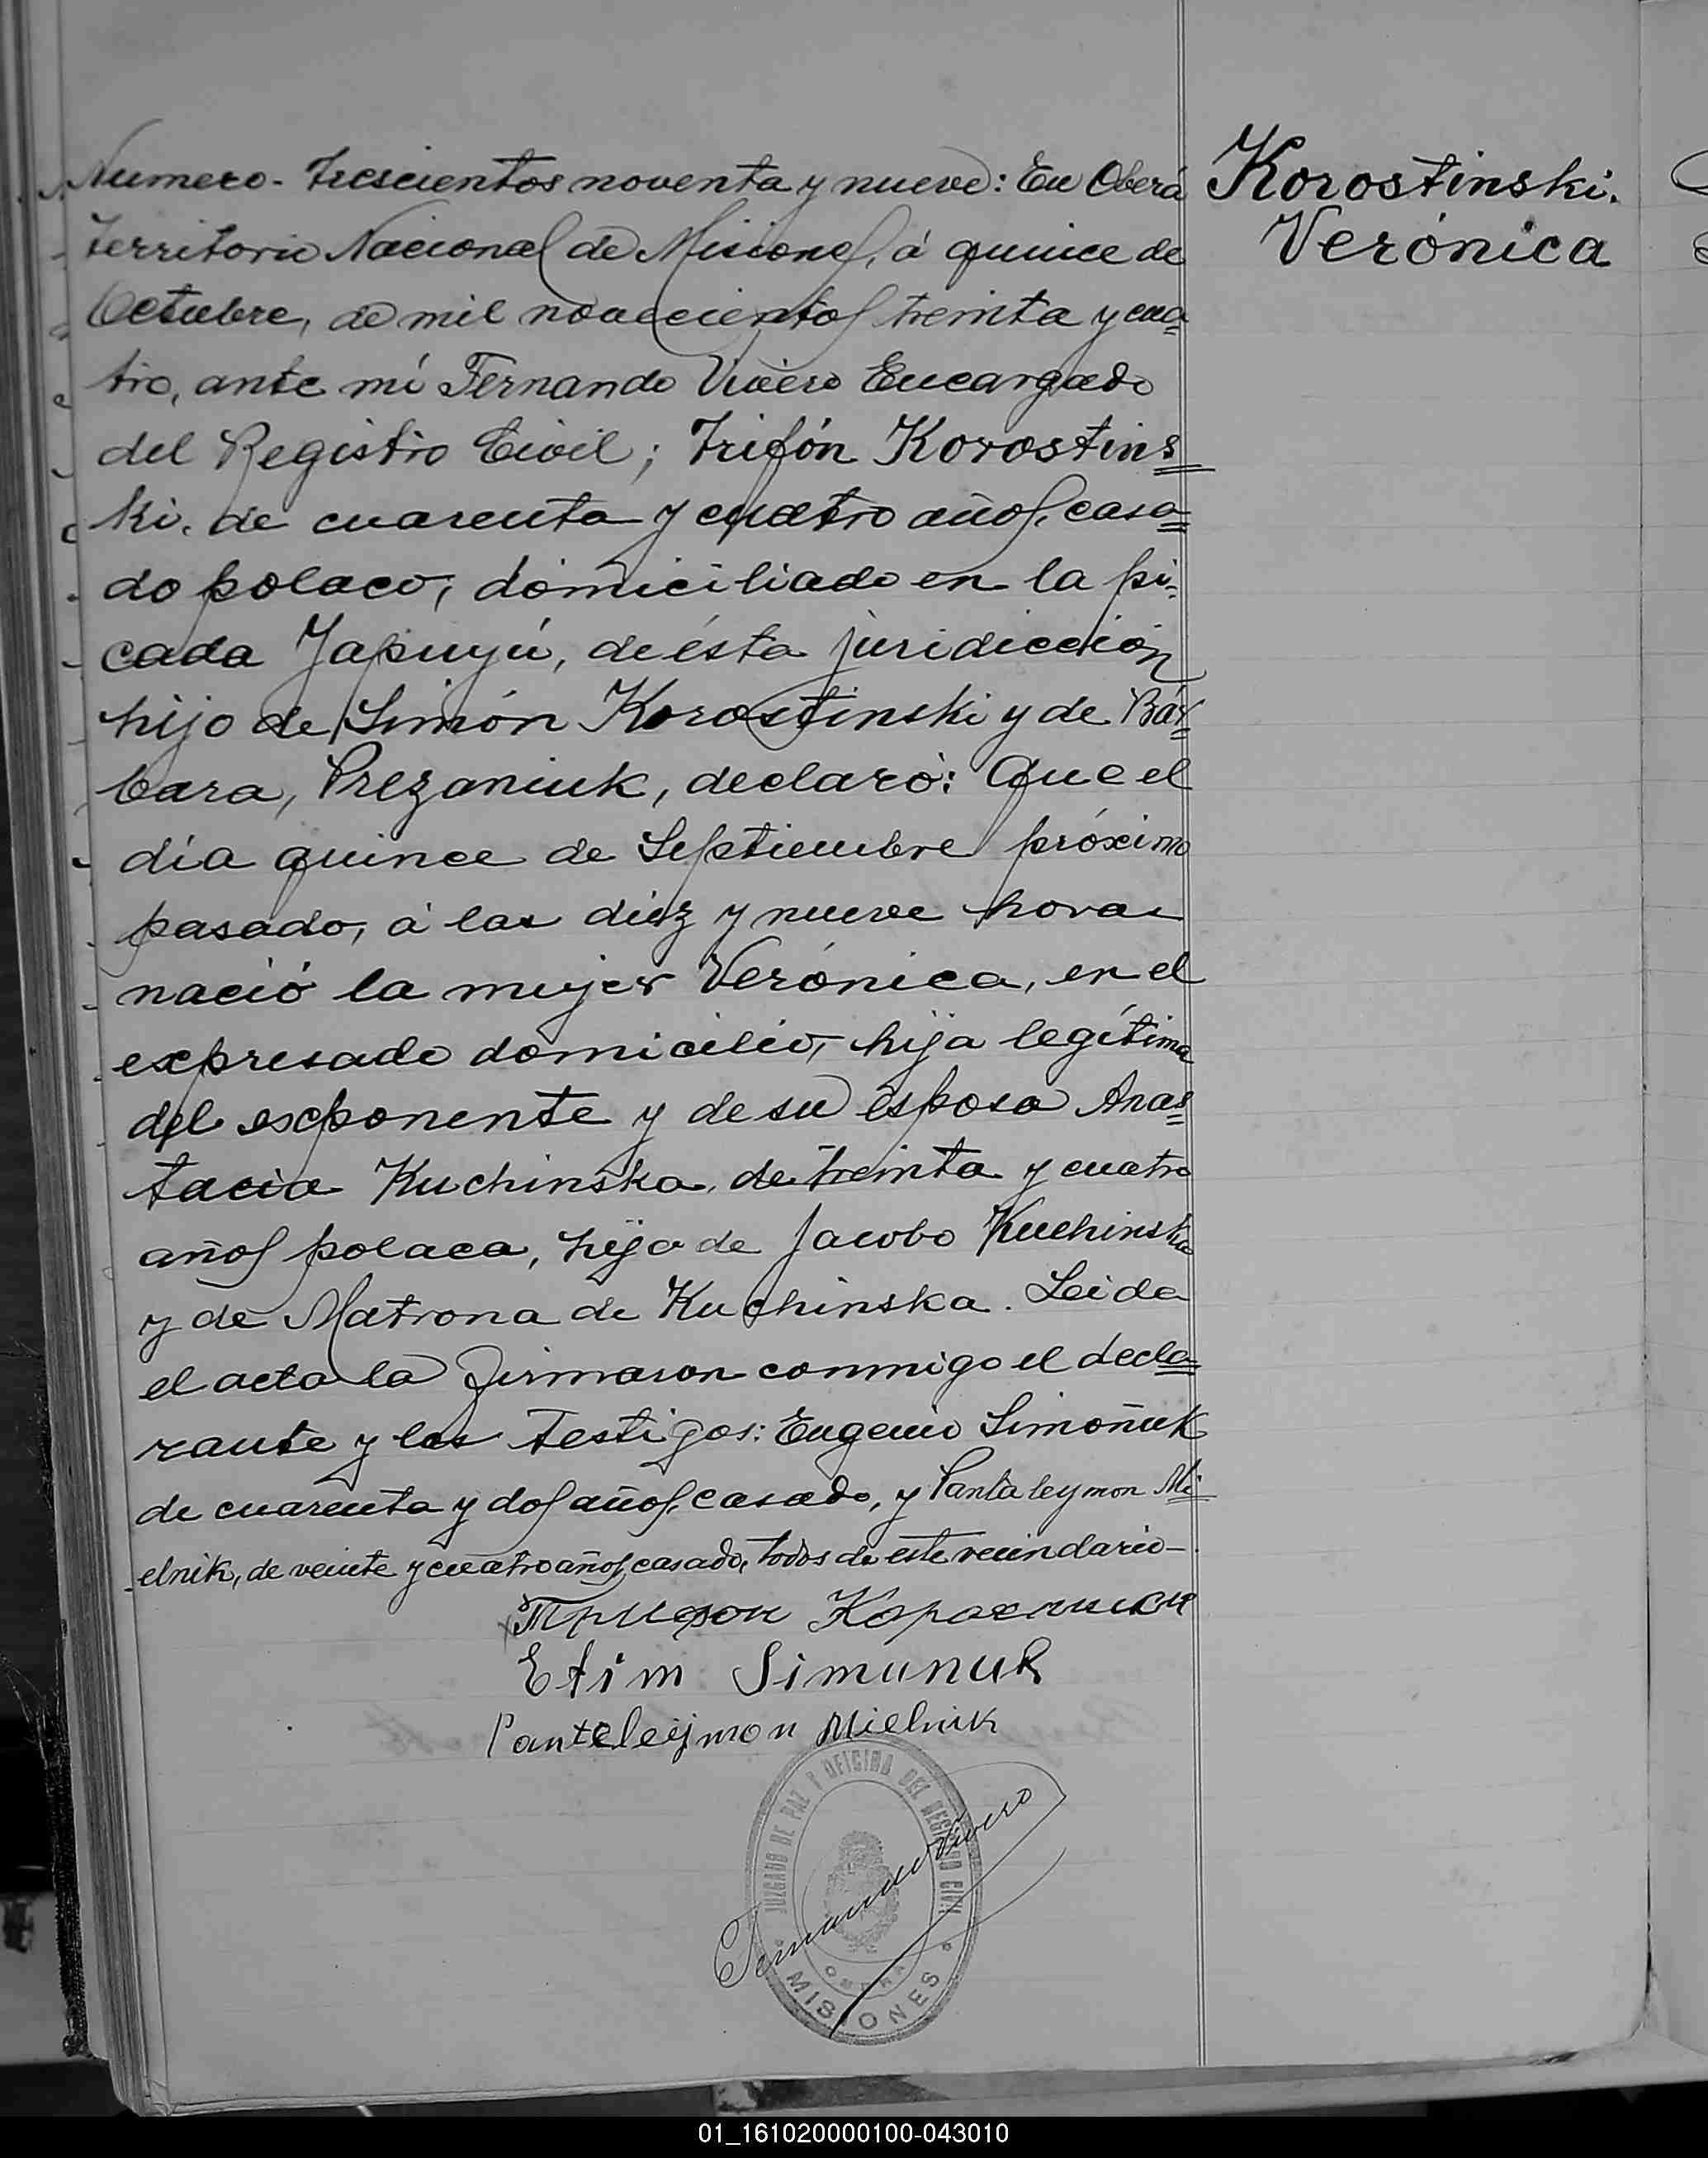 Numero- Trescientos noventa y nueve: En Oberá
Territorio Nacional de Misiones, á quince de
Octubre, de mil novecientos treinta y cua=
tro, ante mí Fernando Vivero Encargado
del Registro Civil; Trifón Korostins=
ki, de cuarenta y cuatro años, casa=
do polaco, domiciliado en la pi=
cada Yapuyú, de ésta juridicción
hijo de Simón Korostinski y de Bár=
bara, Prezaniuk, declaró: Que el
día quince de Septiembre próximo
pasado, á las diez y nueve horas
nació la mujer Verónica, en el
expresado domicilio, hija legítima
del exponente y de su esposa Anas=
tacia Kuchinska, de treinta y cuatro
años polaca, hija de Jacobo Kuchinska
y de Matrona de Kuchinska. Leida
el acta la firmaron conmigo el decla=
rante y los testigos: Eugenio Simoñuk
de cuarenta y dos años, casado, y Pantaleymon Mi=
elnik, de veinte y cuatro años, casado, todos de este vecindario-
Korostinski.
Verónica
Трифон
Efim Simunuk
Panteleijmon Mielnik
Fernando Vivero
JUZGADO DE PAZ Y OFICINA DEL REGISTRO CIVIL
MISIONES
01_161020000100-043010